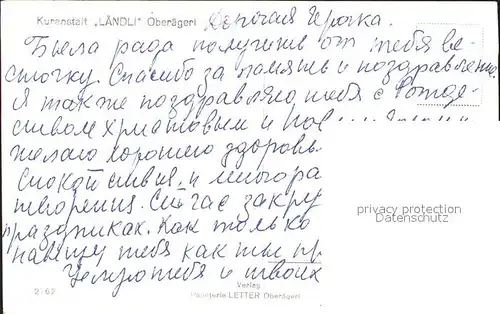 Kuranstalt „LÄNDLI" Oberägeri
Дорогая Герочка.
Была рада получить от тебя ве-
сточку. Спасибо за память и поздравление
Я также поздравляю тебя с Рожде-
ством христовым и Нов
желаю хорошего здоровь
спокойствия и многора
творения. Сейчас закру
праздниках. Как только
напишу тебя как ты пр
Целую тебя и твоих
privacy protection
Datenschutz
2762
Verlag
Papeterie LETTER Oberägeri